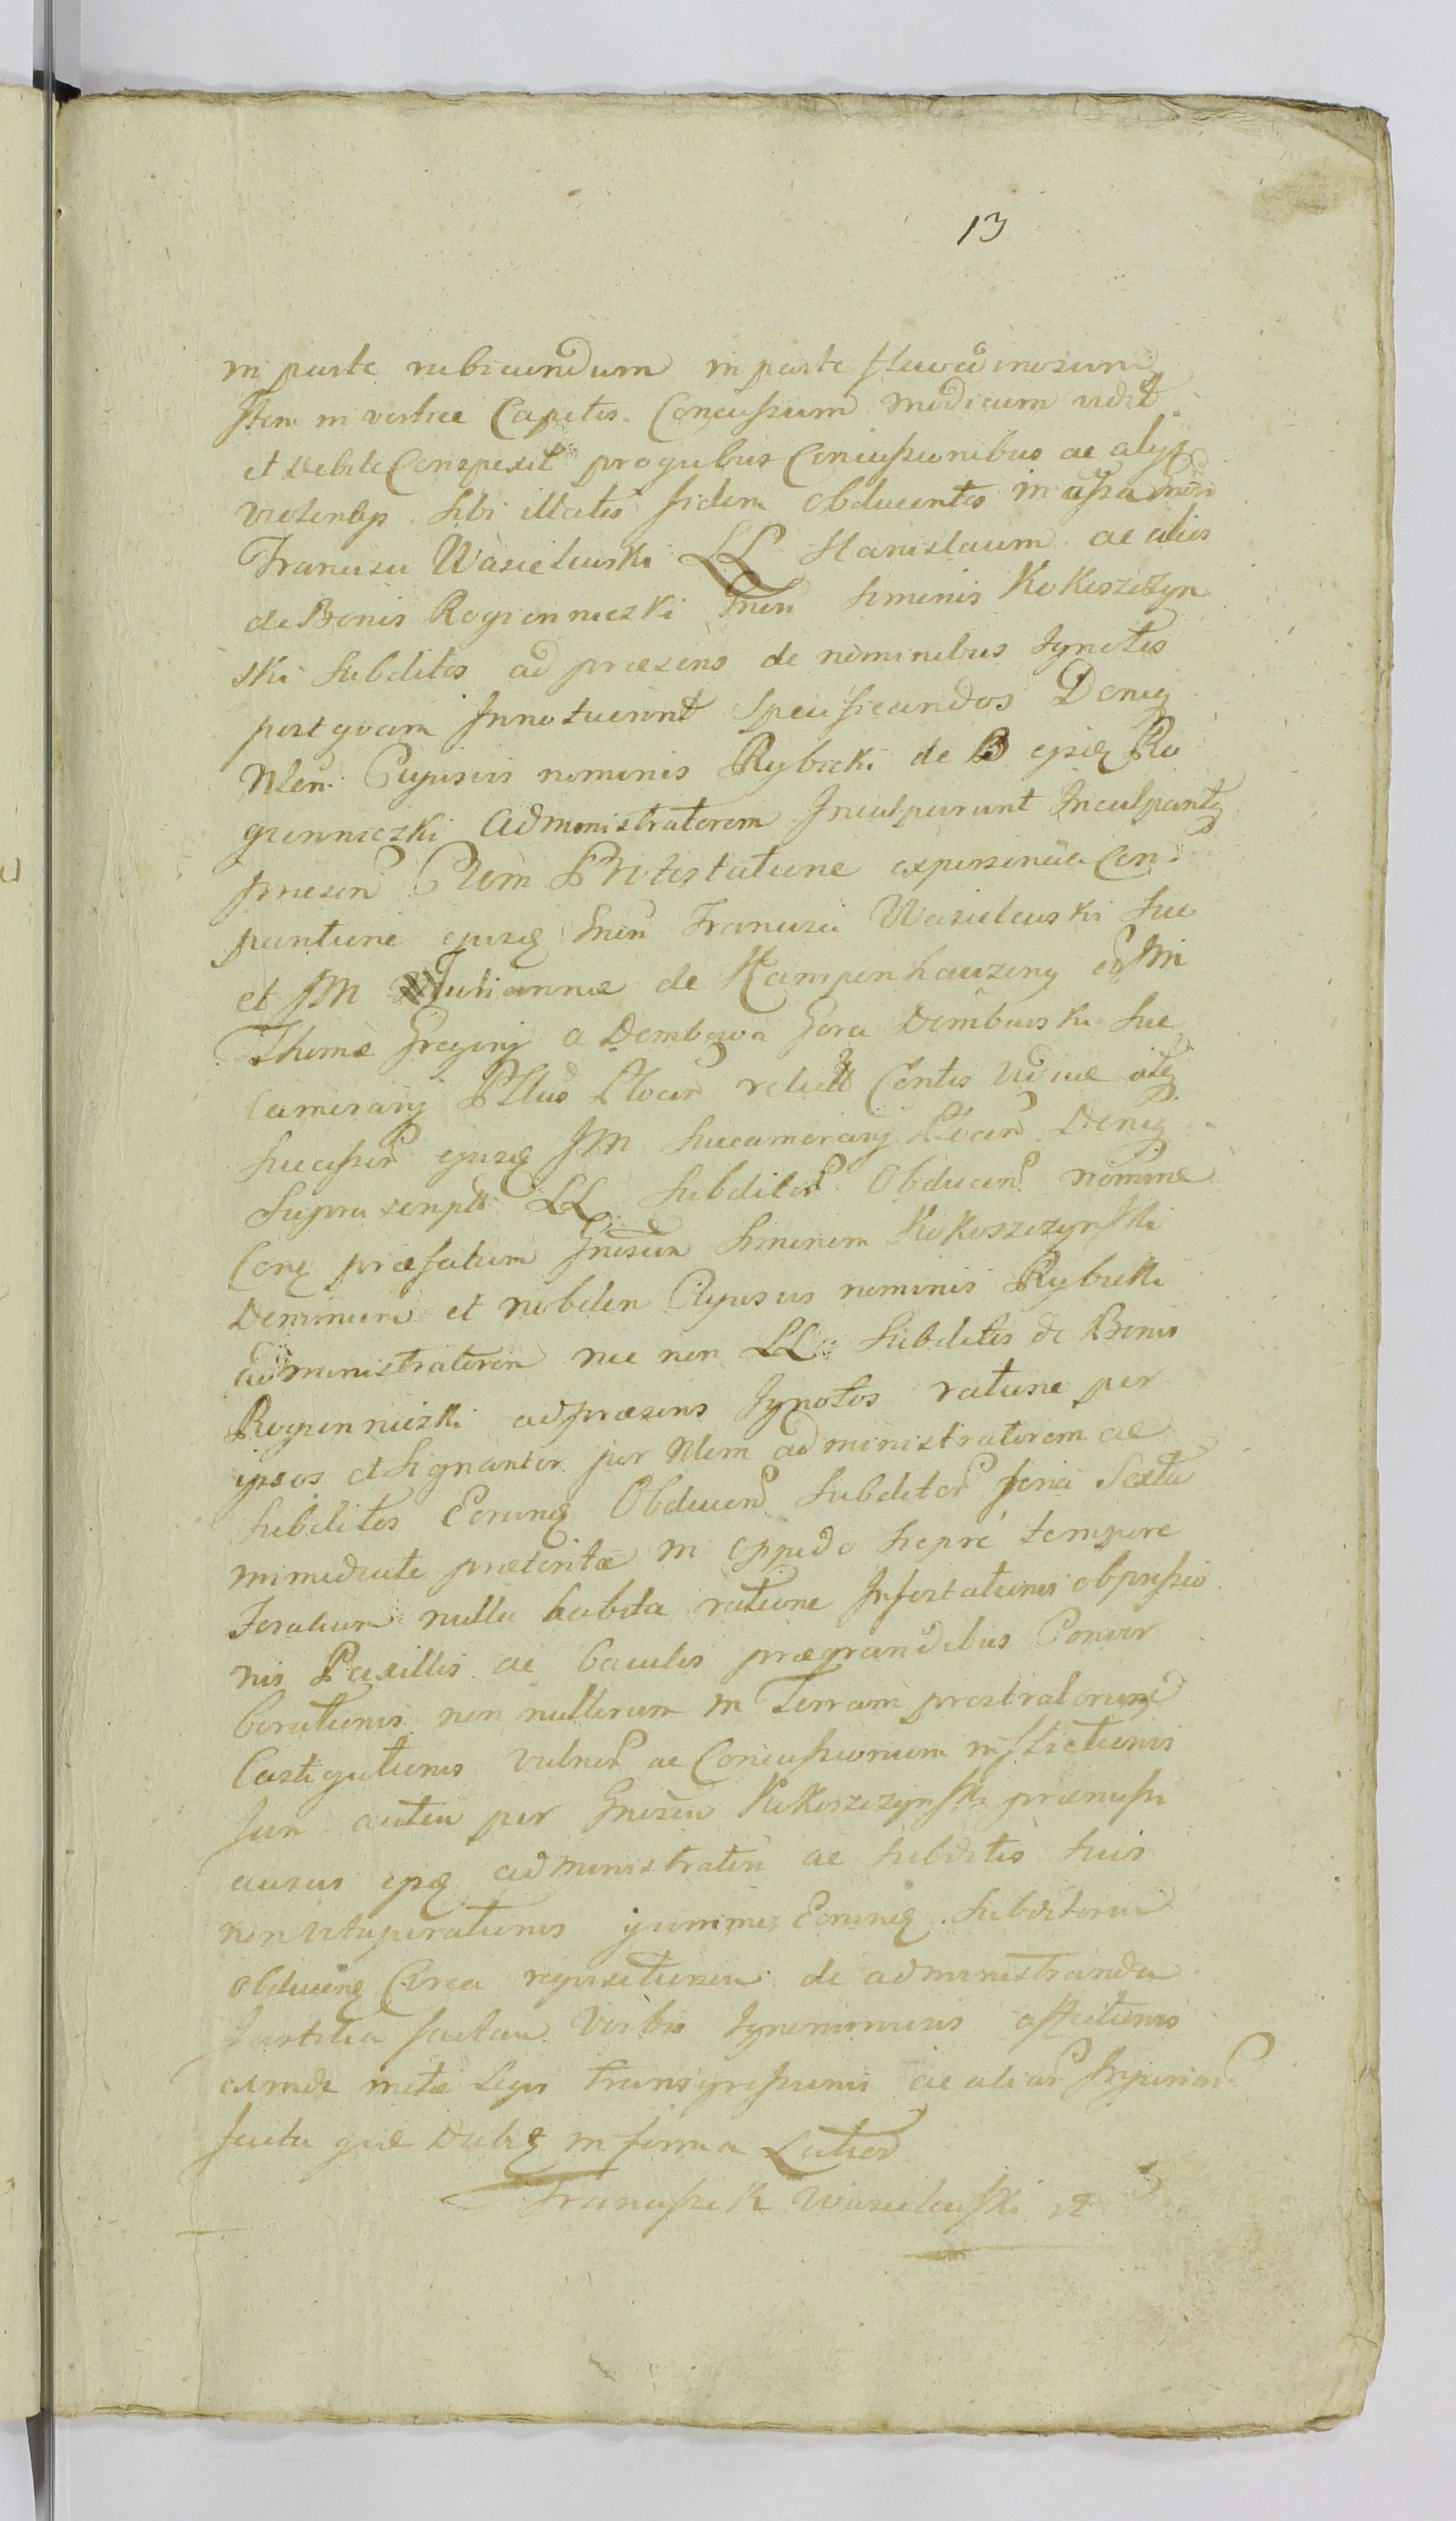 13
in parte rubicundum in parte flavedinosum
Item in vertice Capitis Concussum modicum vidit
et debite Conspexit pro quibus Concussionibus ac alys
violentys sibi illatis fidem obducentes in assa
Francisci Wasielewski LL Stanislaum ac alios
de Bonis Rogienniczki Simonis Kokoszczyn
ski subditos ad præsens de nominibus Ignotos
postquam Innotuerint Specificandos Deniq
Nlem Cujusvis nominis Rybicki de B ejusq Ro
gienniczki Administratorem Inculparunt Inculpantq
præsen Protestatione
ejusq Francisci Wasielewski Suo
et IM Juliannæ de Kampenhauzeny
Thomæ Gregorij a Dembowa Gora Dembowski Suc
camerarij relictæ Contis viduæ
Successor ejusq IM Succamerarij Deniq
Suprascript LL Subditor Obducen nomine
Conq præfatum Simonem Kokoszczynski
Dominum et nobilem Cujusvis nominis Rybicki
administratorem nec non LL Subditos de Bonis
Rogienniczki ad præsens Ignotos ratione per
ipsos et signanter per Nlem administratorem ac
subditos Eorumq Obducen Subditor feria Sexta
immediate præterita in oppido Siepré tempore
Foralium nulla habita ratione Infestationis obpressio
nis Paxillis ac baculis prægrandibus Conver
berationis non nullorum in Terram prostratorumq
Castigationis vulner ac Concussionum inflictionis
per Kokoszczynski præmissi
ausus administratori ac subditis suis
non vituperationis Eorumq Subditorum
obducenq Circa requisitionem de administranda
Justitia factam Verbis Ignominiosis
metæ Legis transgressionis ac aliar Injuriar
facta quæ Dabiq in forma Latior
Franciszek Wasielewski